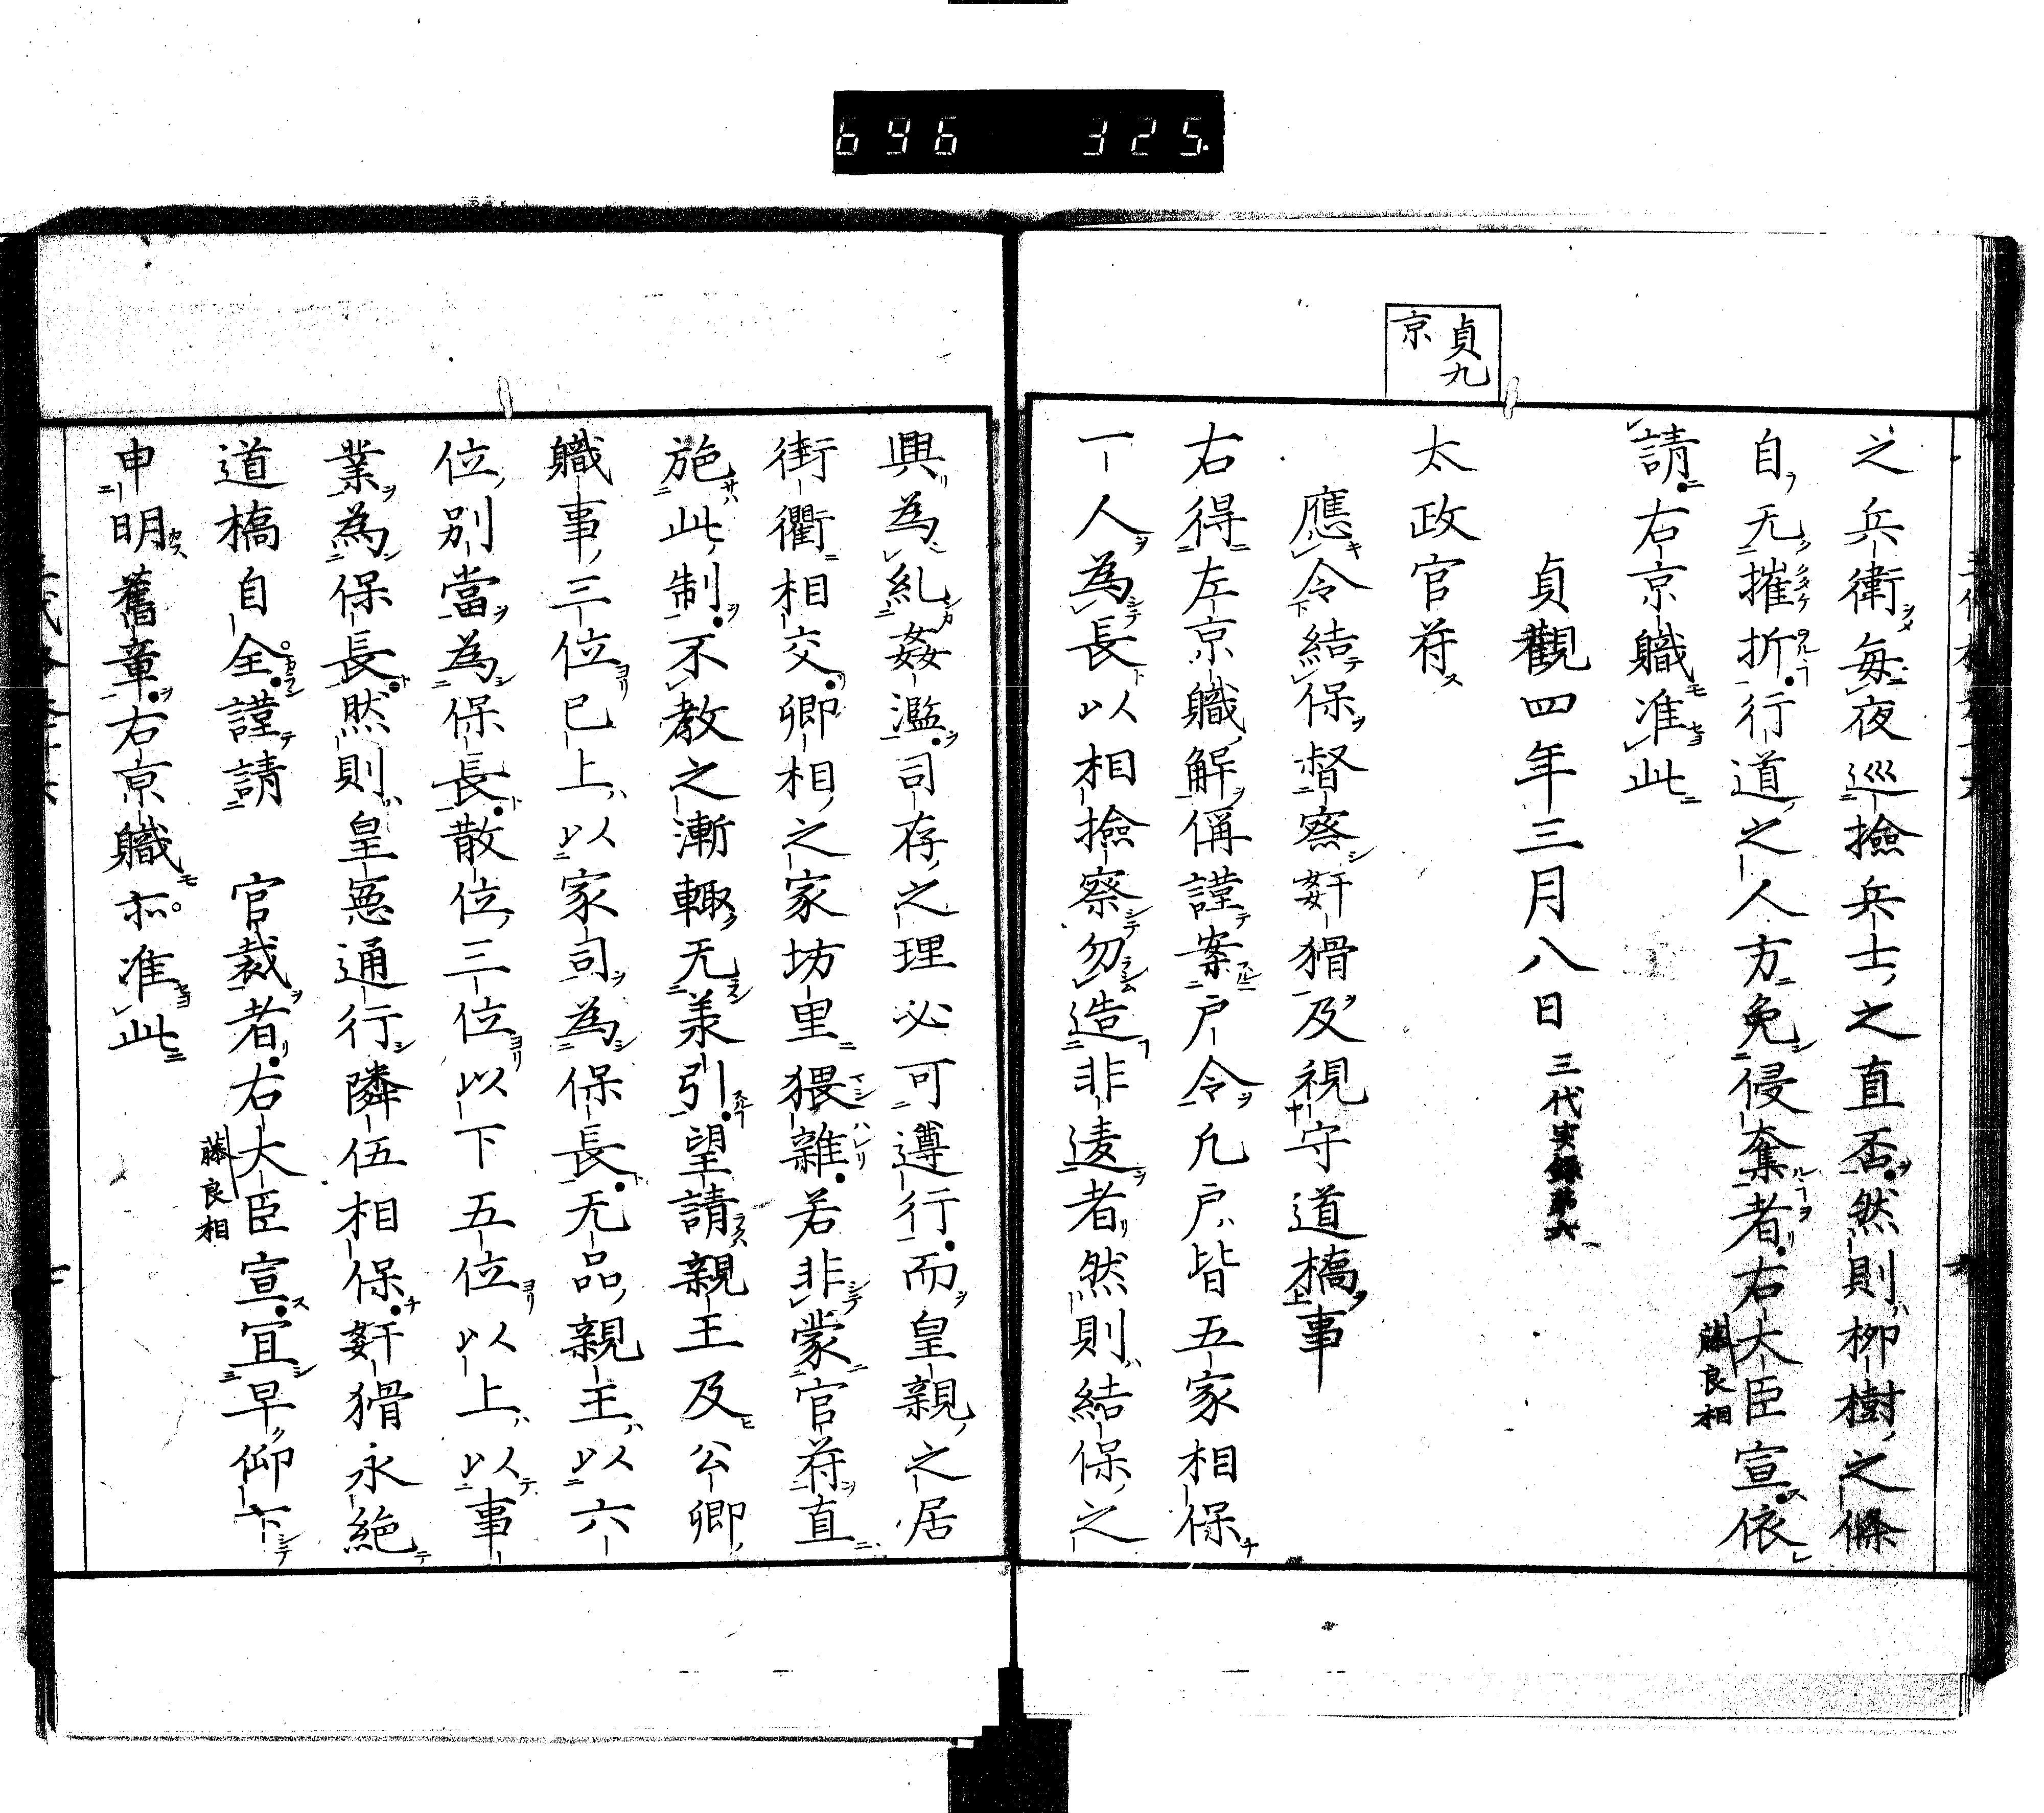 696 325
貞九
京
之兵衛毎夜巡撿兵士之直否然則柳樹之條
自无摧折行道之人方免侵奪者右大臣宣依
藤良相
請右京職准此
貞觀四年三月八日 三代実録第六
太政官符
應令結保督察姧猾及視守道橋事
右得左京職解偁謹案戸令凡戸皆五家相保
一人為長以相撿察勿造非違者然則結保之
興為糺姦濫司存之理必可遵行而皇親之居
街衢相交卿相之家坊里猥雜若非蒙官符直
施此制不教之漸輙无羕引望請親王及公卿
職事三位已上以家司為保長无品親王以六
位別當為保長散位三位以下五位以上以事
業為保長然則皇憲通行隣伍相保姧猾永絶
道橋自全謹請 官裁者右大臣宣宜早仰下
藤良相
申明舊章右京職亦准此